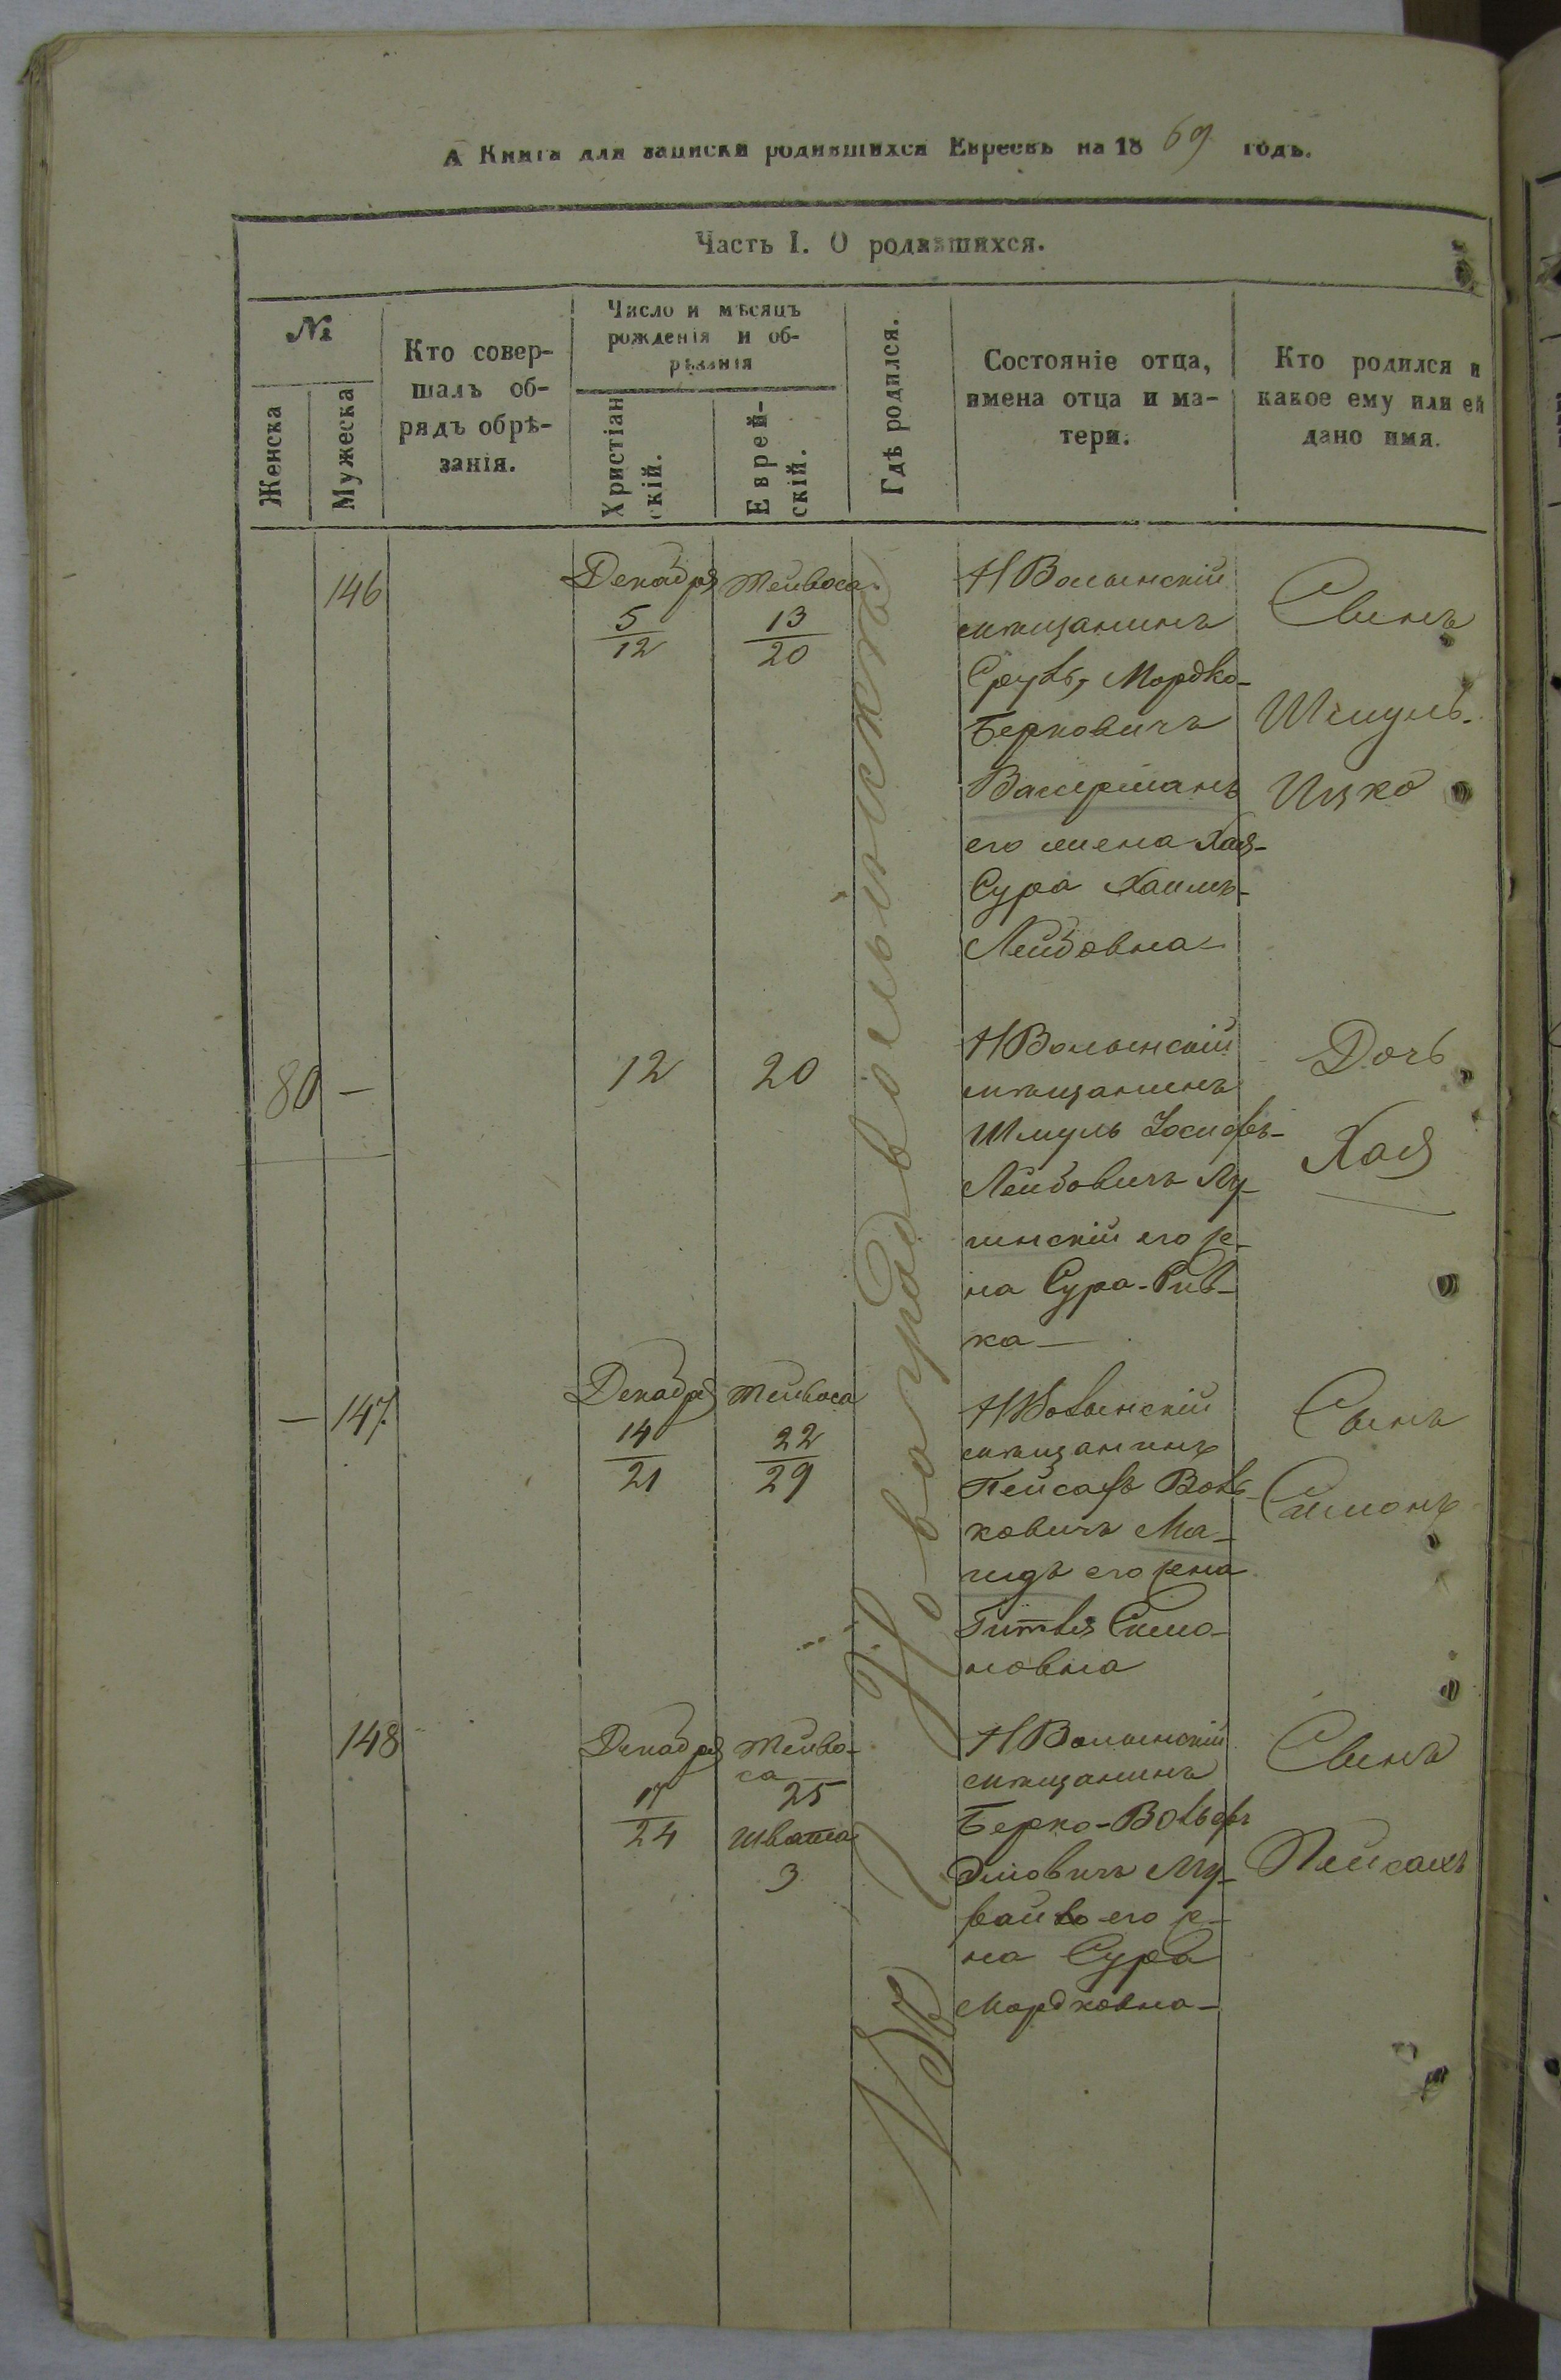 А Книга для записки родившихся Евреевъ на 1869 годъ.
Часть I. О родившихся.
№
Женска
Мужеска
Кто совер-
шалъ об-
рядъ обрѣ-
занія.
Число и мѣсяцъ
рожденія и об-
рѣзанія
Христіан
скій.
Еврей-
скій.
Гдѣ родился.
Состояніе отца,
имена отца и ма-
тери.
Кто родился и
какое ему или ей
дано имя.
146
Декабря
5
12
Тейвоса
13
20
НВолынскій
мѣщанинъ
Сруль, Мордко-
Берковичъ
Вассерманъ
его жена Хая-
Сура Хаимъ-
Лейбовна
Сынъ
Шмуль-
Ицко
80 —
12
20
НВолынскій
мѣщанинъ
Шмуль Іосифъ-
Лейбовичъ Лу-
гинскій его же-
на Сура-Рив-
ка —
Дочь
Хая
— 147
Декабря
14
21
Тейвоса
22
29
НВолынскій
мѣщанинъ
Пейсахъ Воль-
ковичъ Ма-
гидъ его жена
Гитля Симо-
новна
Сынъ
Симонъ
148
Декабря
17
24
Тейво-
са
25
Швата
3
НВолынскій
мѣщанинъ
Берко-Вольфъ
его же-
на Сура
Мордковна —
Сынъ
Пейсахъ
Новоградволынскѣ